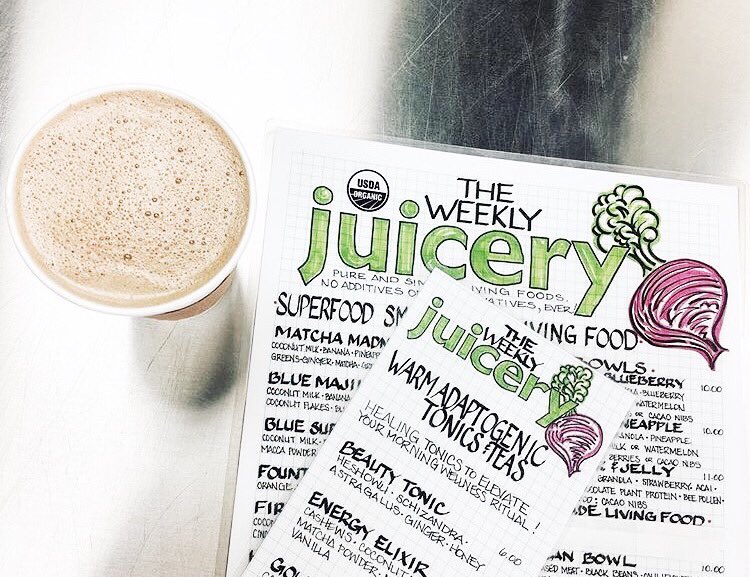 USDA
ORGANIC
THE
WEEKLY
juicery
PURE AND LIVING FOODS.
NO ADDITIVES EVER!
SUPERFOOD LIVING FOOD
MATCHA
COCONUT MILK • BANANA •
GREENS • GINGER • MATCHA •
BLUE
COCONUT MILK • BANANA
COCONUT FLAKES •
BLUE
COCONUT MILK •
MACCA POWDER
BOWLS
BLUEBERRY 10.00
BLUEBERRY
WATERMELON
OR CACAO NIBS
10.00
PINEAPPLE
MILK OR WATERMELON
BERRIES OR CACAO NIBS
& JELLY 11.00
GRANOLA • STRAWBERRY • ACAI •
PLANT PROTEIN • BEE POLLEN •
CACAO NIBS
LIVING FOOD •
BOWL
MEAT • BLACK BEANS •
THE
WEEKLY
juicery
WARM ADAPTOGENIC
TONICS & TEAS
HEALING TONICS TO ELEVATE
YOUR MORNING WELLNESS RITUAL!
BEAUTY TONIC
HESHOWU • SCHIZANDRA •
ASTRAGALUS • GINGER • HONEY
6.00
ENERGY ELIXIR
CASHEWS • COCONUT
MATCHA POWDER •
VANILLA